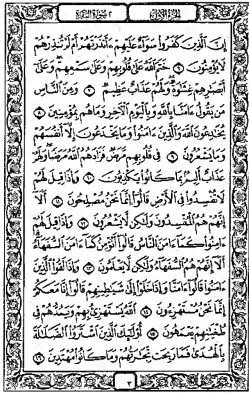 الجزء الأول ٢ سورة البقرة
إِنَّ ٱلَّذِينَ كَفَرُوا۟ سَوَآءٌ عَلَيْهِمْ ءَأَنذَرْتَهُمْ أَمْ لَمْ تُنذِرْهُمْ
لَا يُؤْمِنُونَ ٦ خَتَمَ ٱللَّهُ عَلَىٰ قُلُوبِهِمْ وَعَلَىٰ سَمْعِهِمْ وَعَلَىٰٓ
أَبْصَٰرِهِمْ غِشَٰوَةٌ وَلَهُمْ عَذَابٌ عَظِيمٌ ٧ وَمِنَ ٱلنَّاسِ
مَن يَقُولُ ءَامَنَّا بِٱللَّهِ وَبِٱلْيَوْمِ ٱلْءَاخِرِ وَمَا هُم بِمُؤْمِنِينَ ٨
يُخَٰدِعُونَ ٱللَّهَ وَٱلَّذِينَ ءَامَنُوا۟ وَمَا يَخْدَعُونَ إِلَّآ أَنفُسَهُمْ
وَمَا يَشْعُرُونَ ٩ فِى قُلُوبِهِم مَّرَضٌ فَزَادَهُمُ ٱللَّهُ مَرَضًا وَلَهُمْ
عَذَابٌ أَلِيمٌۢ بِمَا كَانُوا۟ يَكْذِبُونَ ١٠ وَإِذَا قِيلَ لَهُمْ
لَا تُفْسِدُوا۟ فِى ٱلْأَرْضِ قَالُوٓا۟ إِنَّمَا نَحْنُ مُصْلِحُونَ ١١ أَلَآ
إِنَّهُمْ هُمُ ٱلْمُفْسِدُونَ وَلَٰكِن لَّا يَشْعُرُونَ ١٢ وَإِذَا قِيلَ لَهُمْ
ءَامِنُوا۟ كَمَآ ءَامَنَ ٱلنَّاسُ قَالُوٓا۟ أَنُؤْمِنُ كَمَآ ءَامَنَ ٱلسُّفَهَآءُ
أَلَآ إِنَّهُمْ هُمُ ٱلسُّفَهَآءُ وَلَٰكِن لَّا يَعْلَمُونَ ١٣ وَإِذَا لَقُوا۟ ٱلَّذِينَ
ءَامَنُوا۟ قَالُوٓا۟ ءَامَنَّا وَإِذَا خَلَوْا۟ إِلَىٰ شَيَٰطِينِهِمْ قَالُوٓا۟ إِنَّا مَعَكُمْ
إِنَّمَا نَحْنُ مُسْتَهْزِءُونَ ١٤ ٱللَّهُ يَسْتَهْزِئُ بِهِمْ وَيَمُدُّهُمْ فِى
طُغْيَٰنِهِمْ يَعْمَهُونَ ١٥ أُو۟لَٰٓئِكَ ٱلَّذِينَ ٱشْتَرَوُا۟ ٱلضَّلَٰلَةَ
بِٱلْهُدَىٰ فَمَا رَبِحَت تِّجَٰرَتُهُمْ وَمَا كَانُوا۟ مُهْتَدِينَ ١٦
٣